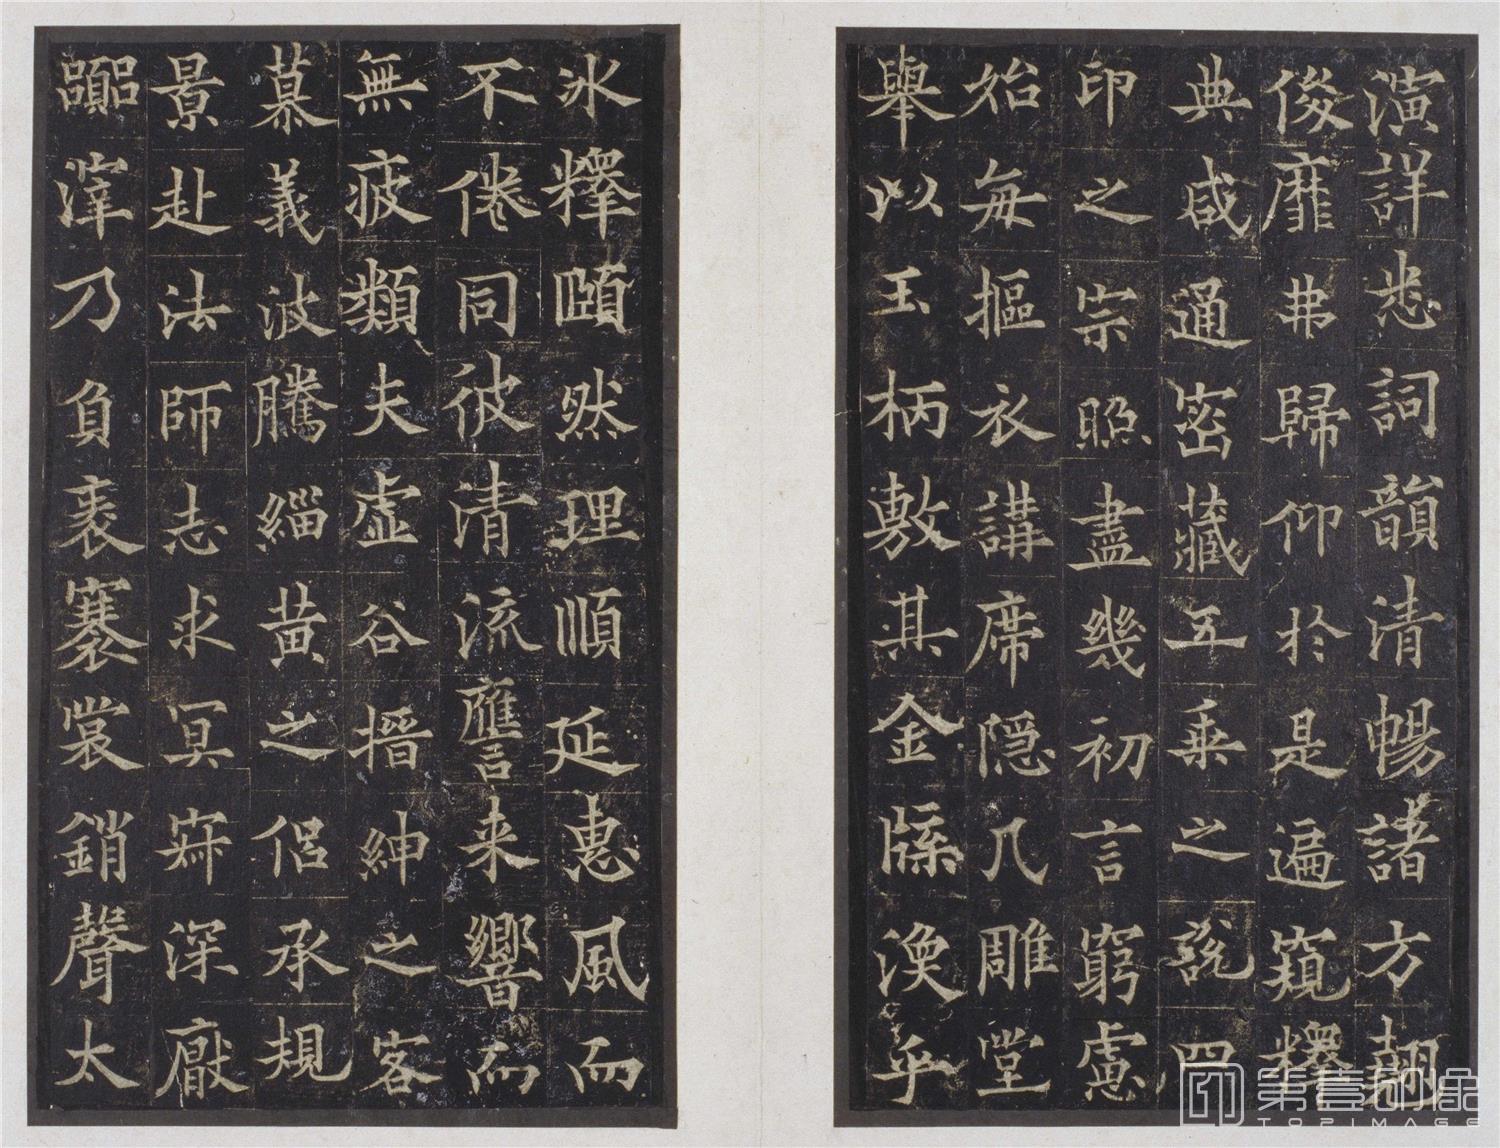 演詳悉詞韻清暢諸方翹
俊靡弗歸仰於是遍窺釋
典咸通密藏五乘之說四
印之宗照盡幾初言窮慮
始每摳衣講席隱几雕堂
舉以玉柄敷其金牒渙乎
冰釋賾然理順延惠風而
不倦同彼清流譍来響而
無疲類夫虛谷搢紳之客
慕義波騰緇黃之侶承規
景赴法師志求冥寂深厭
囂滓乃負袠褰裳銷聲太
第壹印象
TOPIMAGE